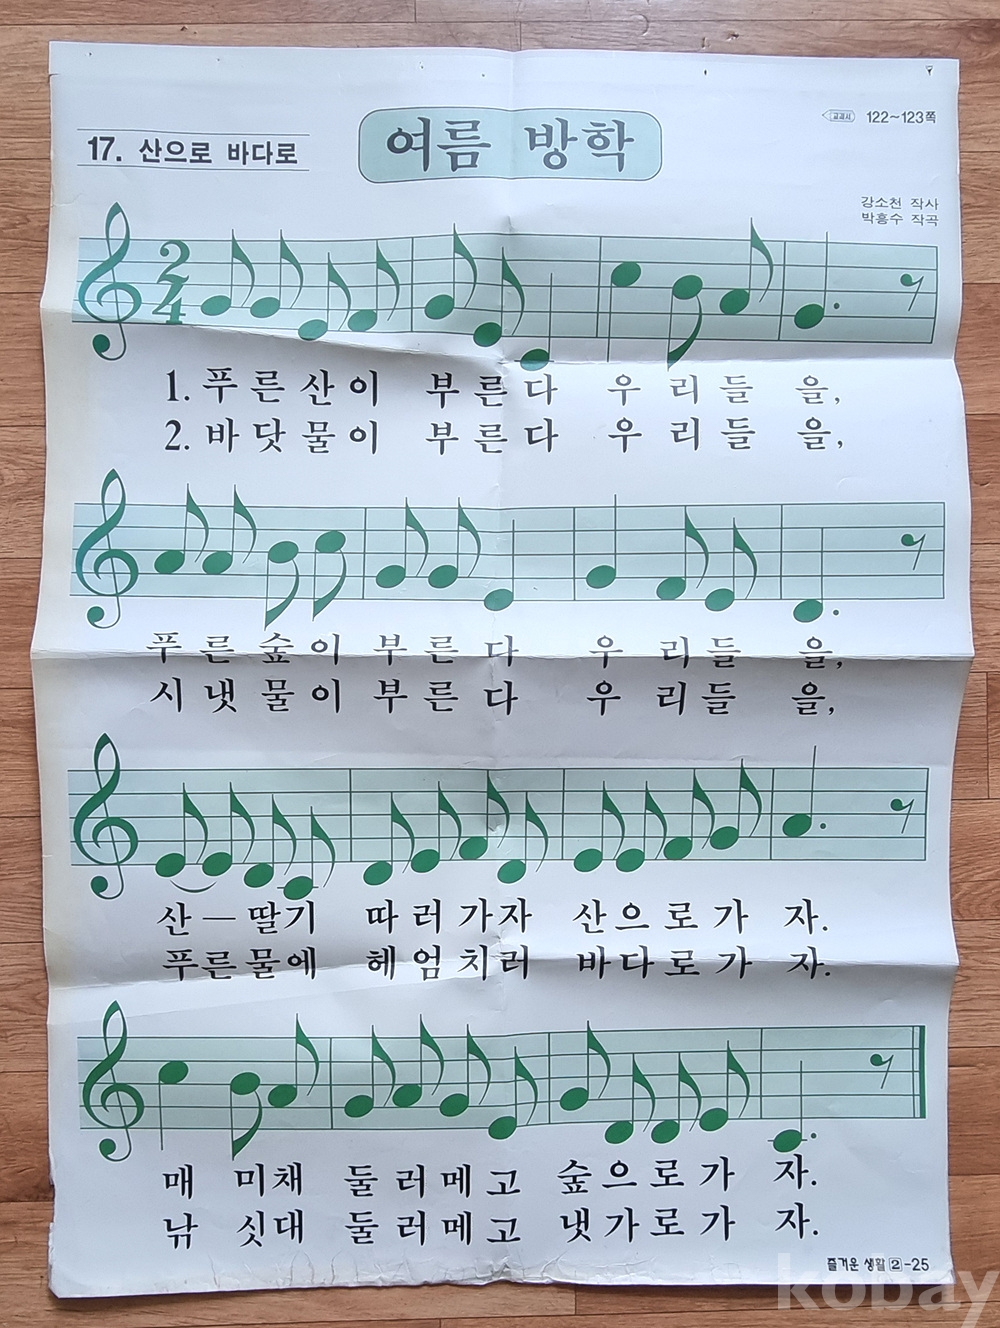 교과서 122~123쪽
17. 산으로 바다로
여름 방학
강소천 작사
박흥수 작곡
2
4
1. 푸른산이 부른다 우리들을,
2. 바닷물이 부른다 우리들을,
푸른숲이 부른다 우리들을,
시냇물이 부른다 우리들을,
산—딸기 따러가자 산으로가자.
푸른물에 헤엄치러 바다로가자.
매미채 둘러메고 숲으로가자.
낚싯대 둘러메고 냇가로가자.
즐거운 생활 2-25
kobay